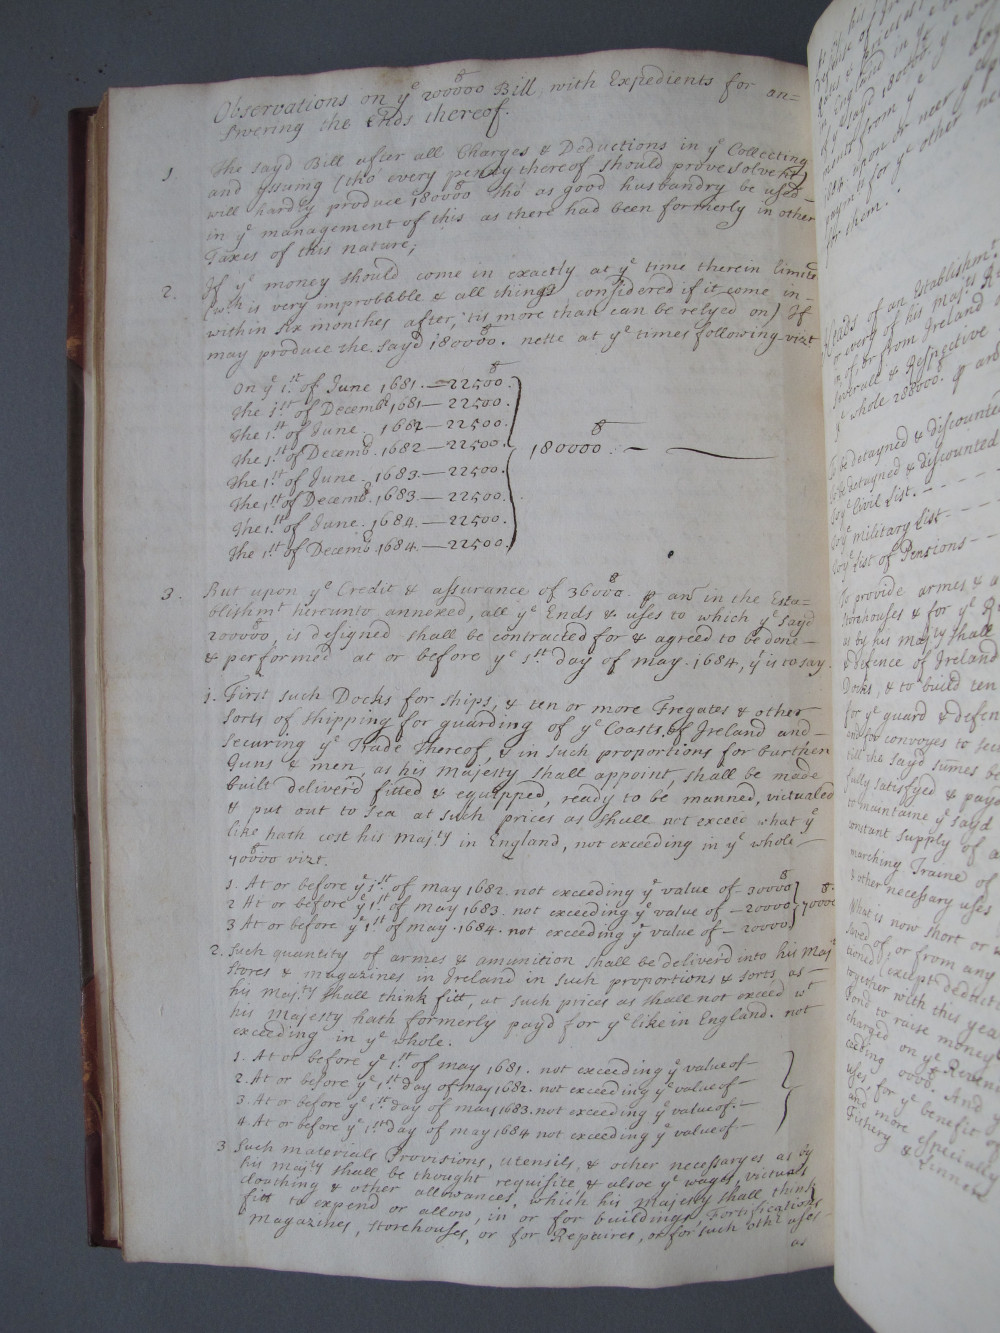 Observations on ye 200000 Bill, with Expedients for an=
swering the Ends thereof.
1 The sayd Bill after all Charges & Deductions in ye Collecting
and Issuing (tho' every penny thereof should prove solvent)
will hardly produce 180000 tho' as good husbandry be used
in ye management of this as there had been formerly in other
Taxes of this nature;
2. If ye money should come in exactly at ye time therein limited
(wch is very improbbble & all things considered if it come in
within six monthes after, 'tis more than can be relyed on) If
may produce the sayd 180000. nette at ye times following vizt
On ye 1st of June 1681. — 22500.
The 1st of Decembr 1681 — 22500.
The 1st of June. 1682 — 22500.
The 1st of Decemb. 1682 — 22500.
180000. —
The 1st of June. 1683. — 22500.
The 1st of Decemb. 1683. — 22500.
The 1st of June. 1684. — 22500.
The 1st of Decemb. 1684. — 22500.
3. But upon ye Credit & assurance of 36000. p an in the Esta=
blishmt hereunto annexed, all ye Ends & uses to which ye sayd
200000, is designed shall be contracted for & agreed to be done —
& performed at or before ye 1st day of may. 1684, yt is to say.
1. First such Docks for ships, & ten or more Fregates & other
sorts of shipping for guarding of ye Coasts of Ireland and —
securing ye Trade thereof, & in such proportions for burthen
Guns & men, as his Majesty shall appoint, shall be made
built deliver'd fitted & equipped, ready to be manned, victualed
& put out to sea at such prices as shall not exceed what ye
like hath cost his Majty in England, not exceeding in ye whole —
70000 vizt.
1. At or before ye 1st of may 1682. not exceeding ye value of — 30000
2 At or before ye 1st of may 1683. not exceeding ye value of — 20000 70000
3 At or before ye 1st of may. 1684. not exceeding ye value of — 20000
2. Such quantity of armes & amunition shall be deliverd into his Majty
stores & magazines in Ireland in such proportions & sorts as —
his Majty shall think fitt, at such prices as shall not exceed wt
his Majesty hath formerly payd for ye like in England. not
exceeding in ye whole.
1. At or before ye 1st of may 1681. not exceeding ye value of —
2. At or before ye 1st day of may 1682. not exceeding ye value of —
3. At or before ye 1st day of may 1683. not exceeding ye value of. —
4. At or before ye 1st day of may 1684 not exceeding ye value of —
3 Such materials Provisions, utensils, & other necessaryes as by
his majty shall be thought requisite & alsoe ye wages, victuals
cloathing & other allowances, which his Majesty shall think
fitt to expend or allow, in or for buildings, Fortifications
Magazines, storehouses, or for Repaires, or for such othr uses
as
for them.
Heads of an Establishmt
or every of his majts
in, of, or from Ireland
severall & Respective
ye whole 288000. p an
To be detayned & discounted
to be detayned & discounted
ye Civil List. - - - -
ye military List - - -
ye List of Pensions - -
To provide armes & a
storehouses & for ye
as by his majty shall
defence of Ireland
Docks, & to build ten
for ye guard & defen
and for convoyes to sec
till the sayd sumes be
fully satisfyed & payd
to maintaine ye sayd
constant supply of a
marching Traine of
& other necessary uses
What is now short or
saved of, or from any
tioned (except deduct
together with this yea
Fond to raise money
charged on ye Reven
ceeding 0000. And
uses, for ye benefit of
and more especially
Fishery & Linnen